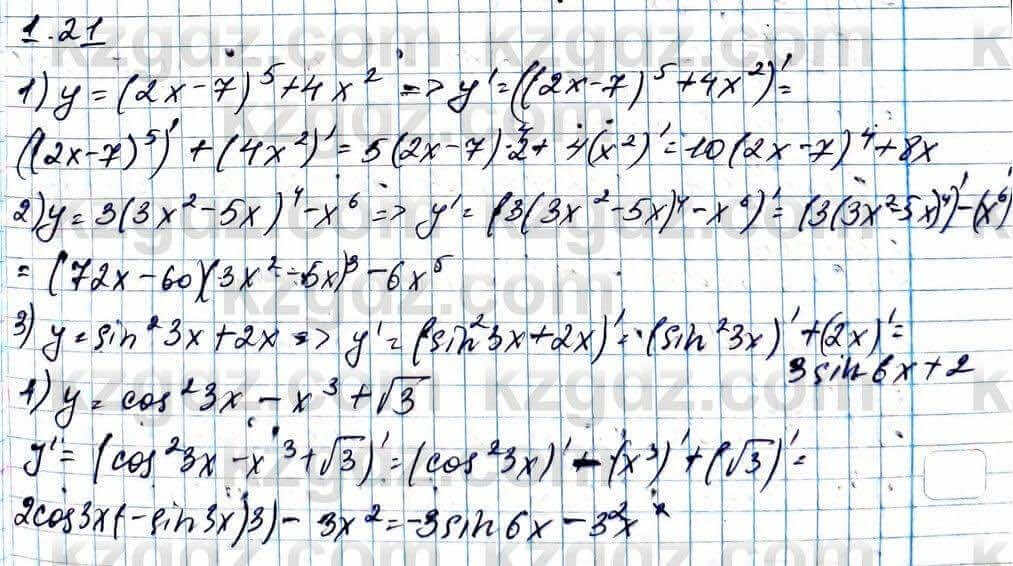 1.21
1) y = (2x-7)^5 + 4x^2 => y' = ((2x-7)^5 + 4x^2)' =
((2x-7)^5)' + (4x^2)' = 5(2x-7)^4·2 + 4(x^2)' = 10(2x-7)^4 + 8x
2) y = 3(3x^2-5x)^4 - x^6 => y' = (3(3x^2-5x)^4 - x^6)' = (3(3x^2-5x)^4)' - (x^6)'
= (72x-60)(3x^2-5x)^3 - 6x^5
3) y = sin^2 3x + 2x => y' = (sin^2 3x + 2x)' = (sin^2 3x)' + (2x)' =
3 sin 6x + 2
4) y = cos^2 3x - x^3 + √3
y' = (cos^2 3x - x^3 + √3)' = (cos^2 3x)' - (x^3)' + (√3)' =
2cos3x(-sin3x)3) - 3x^2 = -3 sin 6x - 3^2x
kzgdz.com